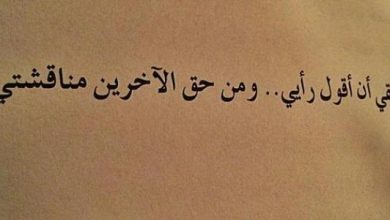 أن أقول رأيي.. ومن حق الآخرين مناقشتي